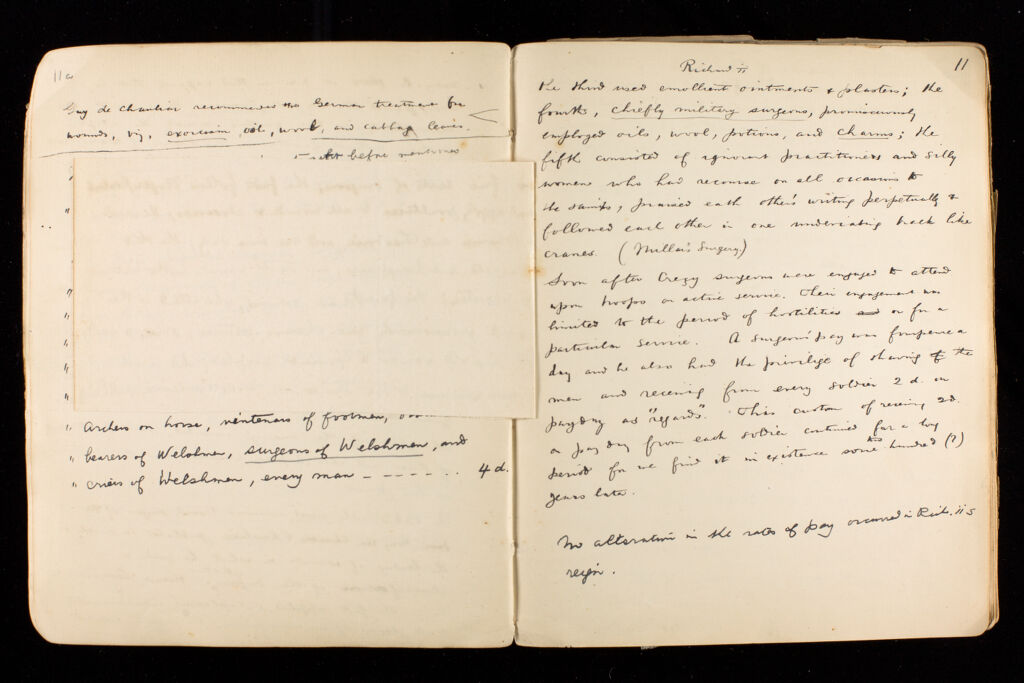 11a
Guy de Chauliac recommended the German treatment for
wounds, viz, exorcism, oil, wool, and cabbage leaves.
before mentioned
"
"
"
"
"
"
" Archers on horse, vinteners of footmen,
" bearers of Welshmen, surgeons of Welshmen, and
" criers of Welshmen, every man - - - - - - 4 d.
Richard II
11
the third used emollient ointments & plasters; the
fourth, chiefly military surgeons, promiscuously
employed oils, wool, potions, and charms; the
fifth consisted of ignorant practitioners and silly
women who had recourse on all occasions to
the saints, praised each others writing perpetually &
followed each other in one undeviating track like
cranes. (Millar's Surgery.)
Soon after Creçy surgeons were engaged to attend
upon troops on active service. Their engagement was
limited to the period of hostilities or for a
particular service. A surgeon's pay was fourpence a
day and he also had the privilege of shaving the
men and receiving from every soldier 2 d. on
payday as "regards". This custom of receiving 2d.
on pay day from each soldier continued for a long
period for we find it in existence some two hundred (?)
years later.
No alteration in the rates of pay occurred in Rich. II's
reign.